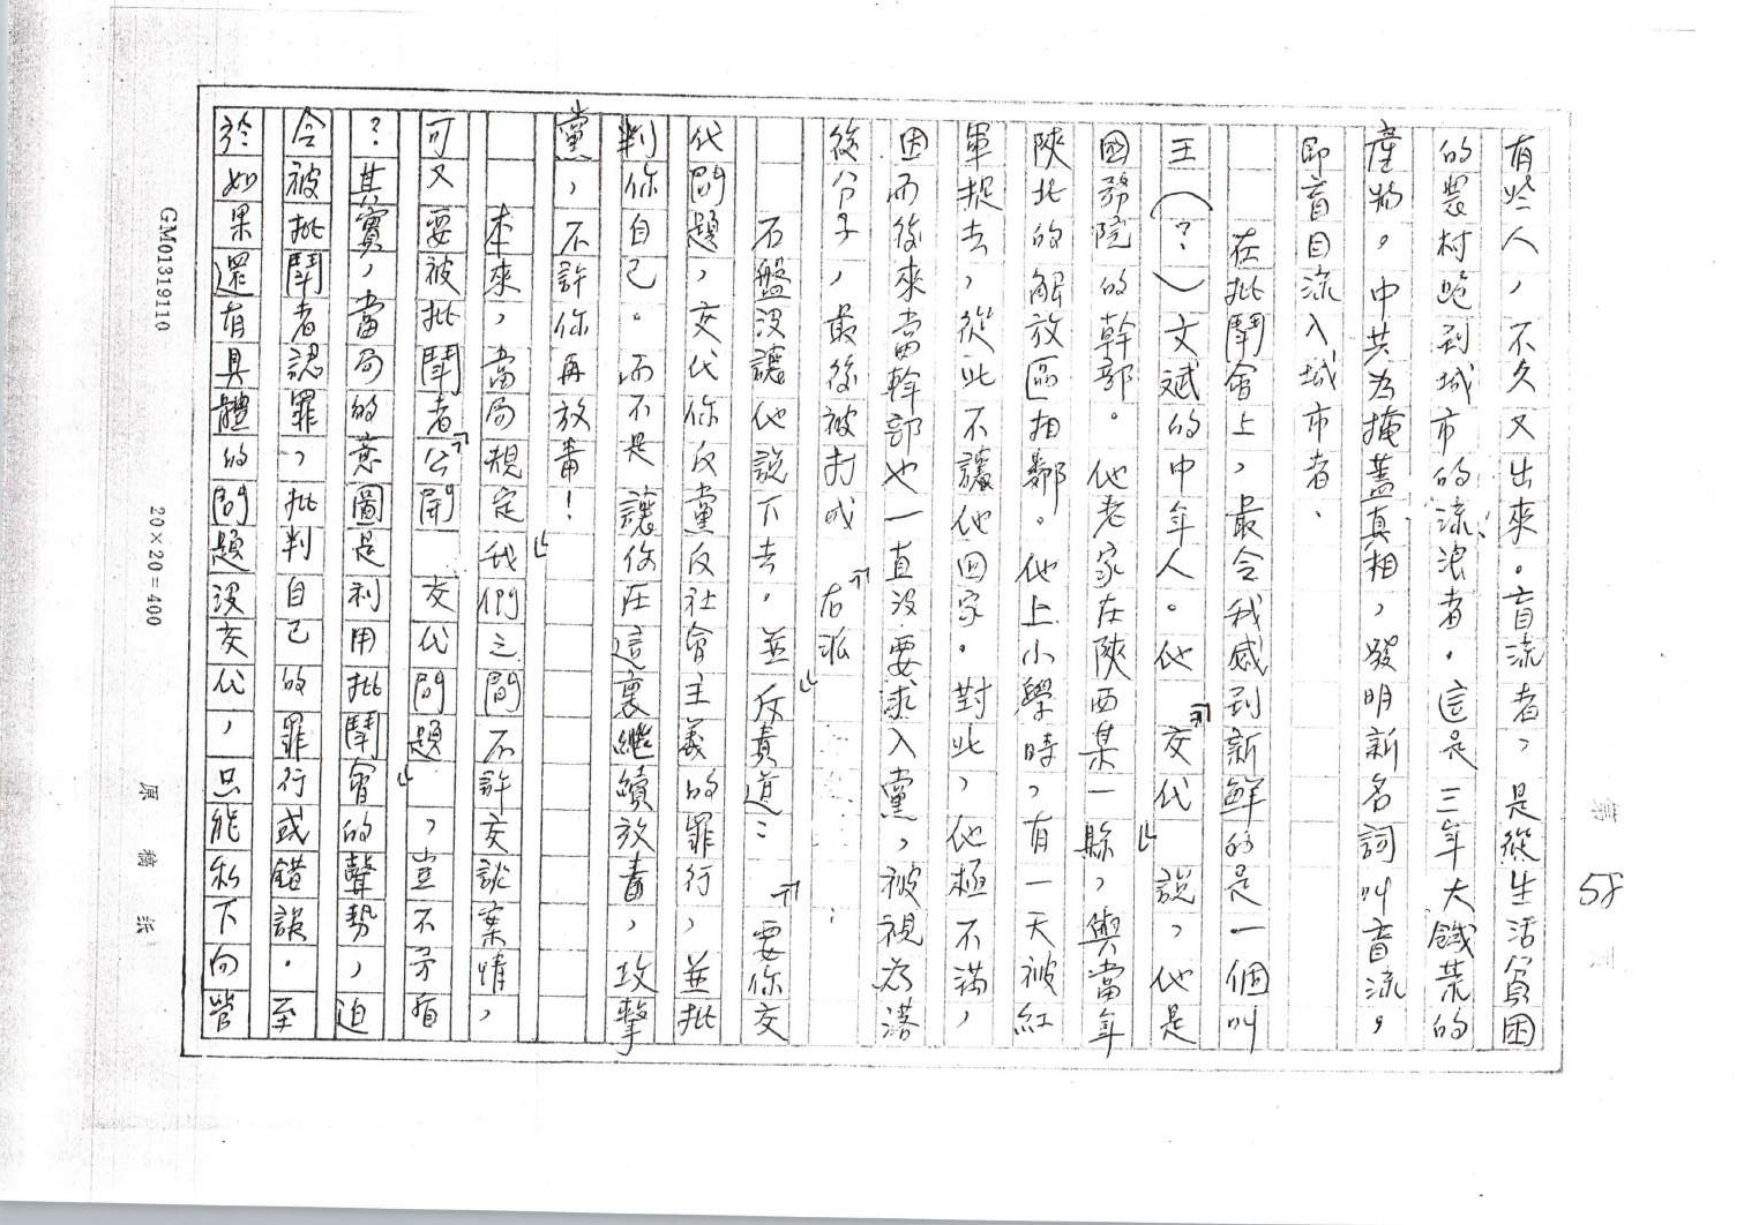 第 58 頁
有些人，不久又出來。盲流者，是從生活貧困
的農村跑到城市的流浪者。這是三年大饑荒的
產物。中共為掩蓋真相，發明新名詞叫盲流，
即盲目流入城市者、
在批鬥會上，最令我感到新鮮的是一個叫
王（？）文斌的中年人。他「交代」說，他是
國務院的幹部。他老家在陝西某一縣，與當年
陝北的解放區相鄰。他上小學時，有一天被紅
軍捉去，從此不讓他回家。對此，他極不滿，
因而後來當幹部也一直沒要求入黨，被視為落
後分子，最後被打成「右派」
石盤沒讓他說下去，並反責道：「要你交
代問題，交代你反黨反社會主義的罪行，並批
判你自己。而不是讓你在這裏繼續放毒，攻擊
黨，不許你再放毒！」
本來，當局規定我們之間不許交談案情，
可又要被批鬥者「公開交代問題」，豈不矛盾
？其實，當局的意圖是利用批鬥會的聲勢，迫
令被批鬥者認罪，批判自己的罪行或錯誤。至
於如果還有具體的問題沒交代，只能私下向管
GM01319110
20×20=400
原稿紙